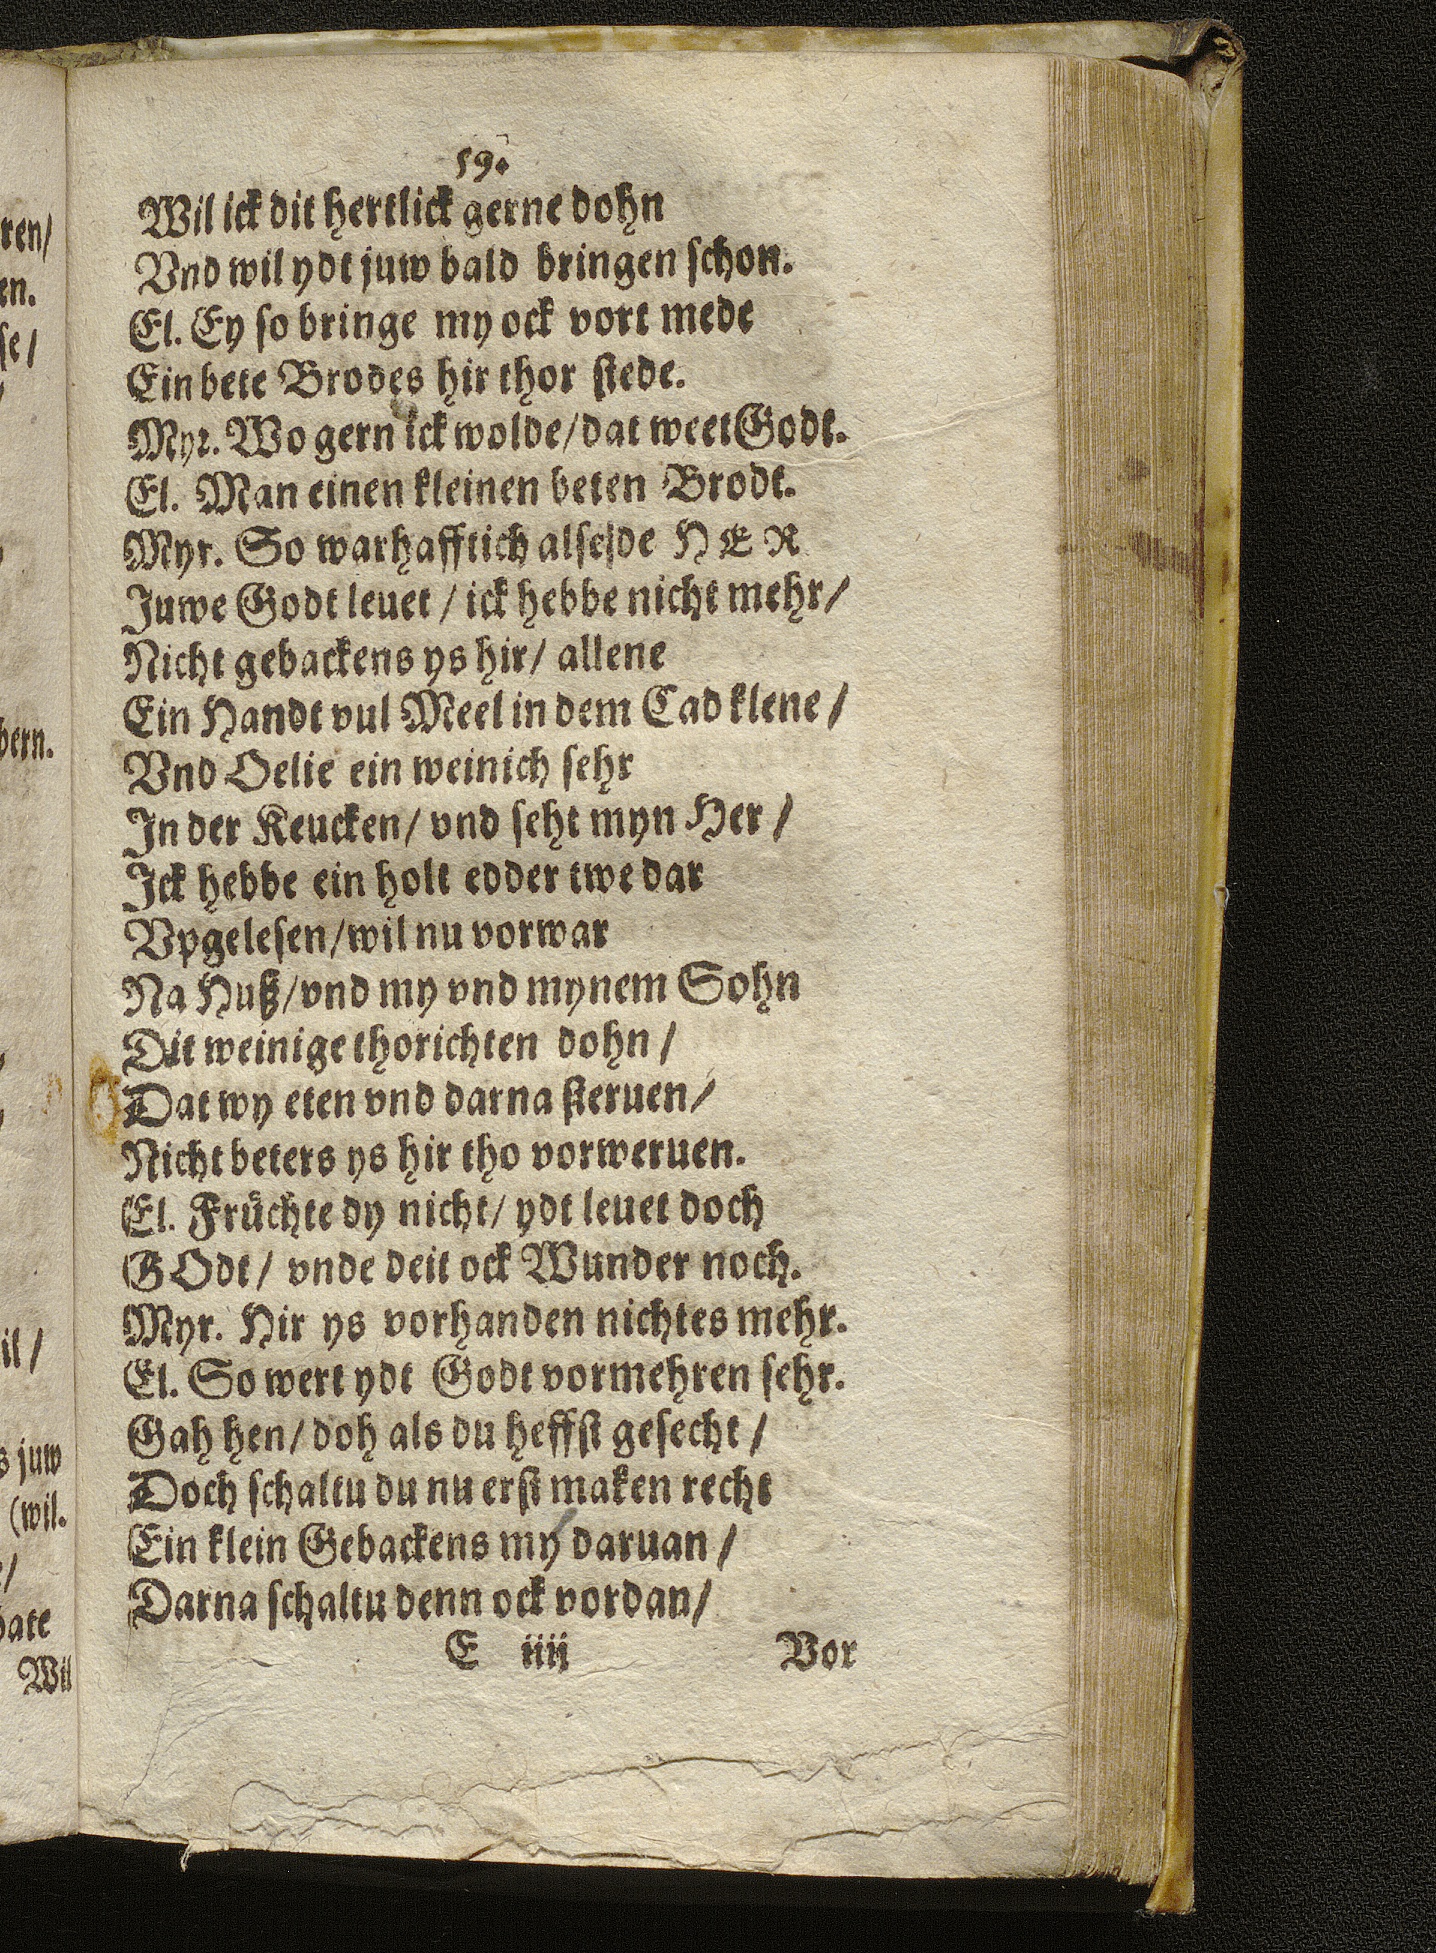 59.
Wil ick dit hertlick gerne dohn
Vnd wil ydt juw bald bringen schon.
El. Ey so bringe my ock vort mede
Ein bete Brodes hir thor stede.
Myr. Wo gern ick wolde/ dat weet Godt.
El. Man einen kleinen beten Brodt.
Myr. So warhafftich alse de HER
Juwe Godt leuet / ick hebbe nicht mehr/
Nicht gebackens ys hir/ allene
Ein Handt vul Meel in dem Cad klene /
Vnd Oelie ein weinich sehr
In der Keucken/ vnd seht myn Her /
Ick hebbe ein holt edder twe dar
Vpgelesen/ wil nu vorwar
Na Huß/ vnd my vnd mynem Sohn
Dit weinige thorichten dohn /
Dat wy eten vnd darna steruen/
Nicht beters ys hir tho vorweruen.
El. Früchte dy nicht/ ydt leuet doch
GOdt/ vnde deit ock Wunder noch.
Myr. Hir ys vorhanden nichtes mehr.
El. So wert ydt Godt vormehren sehr.
Gah hen/ doh als du heffst gesecht /
Doch schaltu du nu erst maken recht
Ein klein Gebackens my daruan /
Darna schaltu denn ock vordan/
E iiij Vor
ren/
en.
se/
bern.
il /
s juw
(wil.
hate
Wil